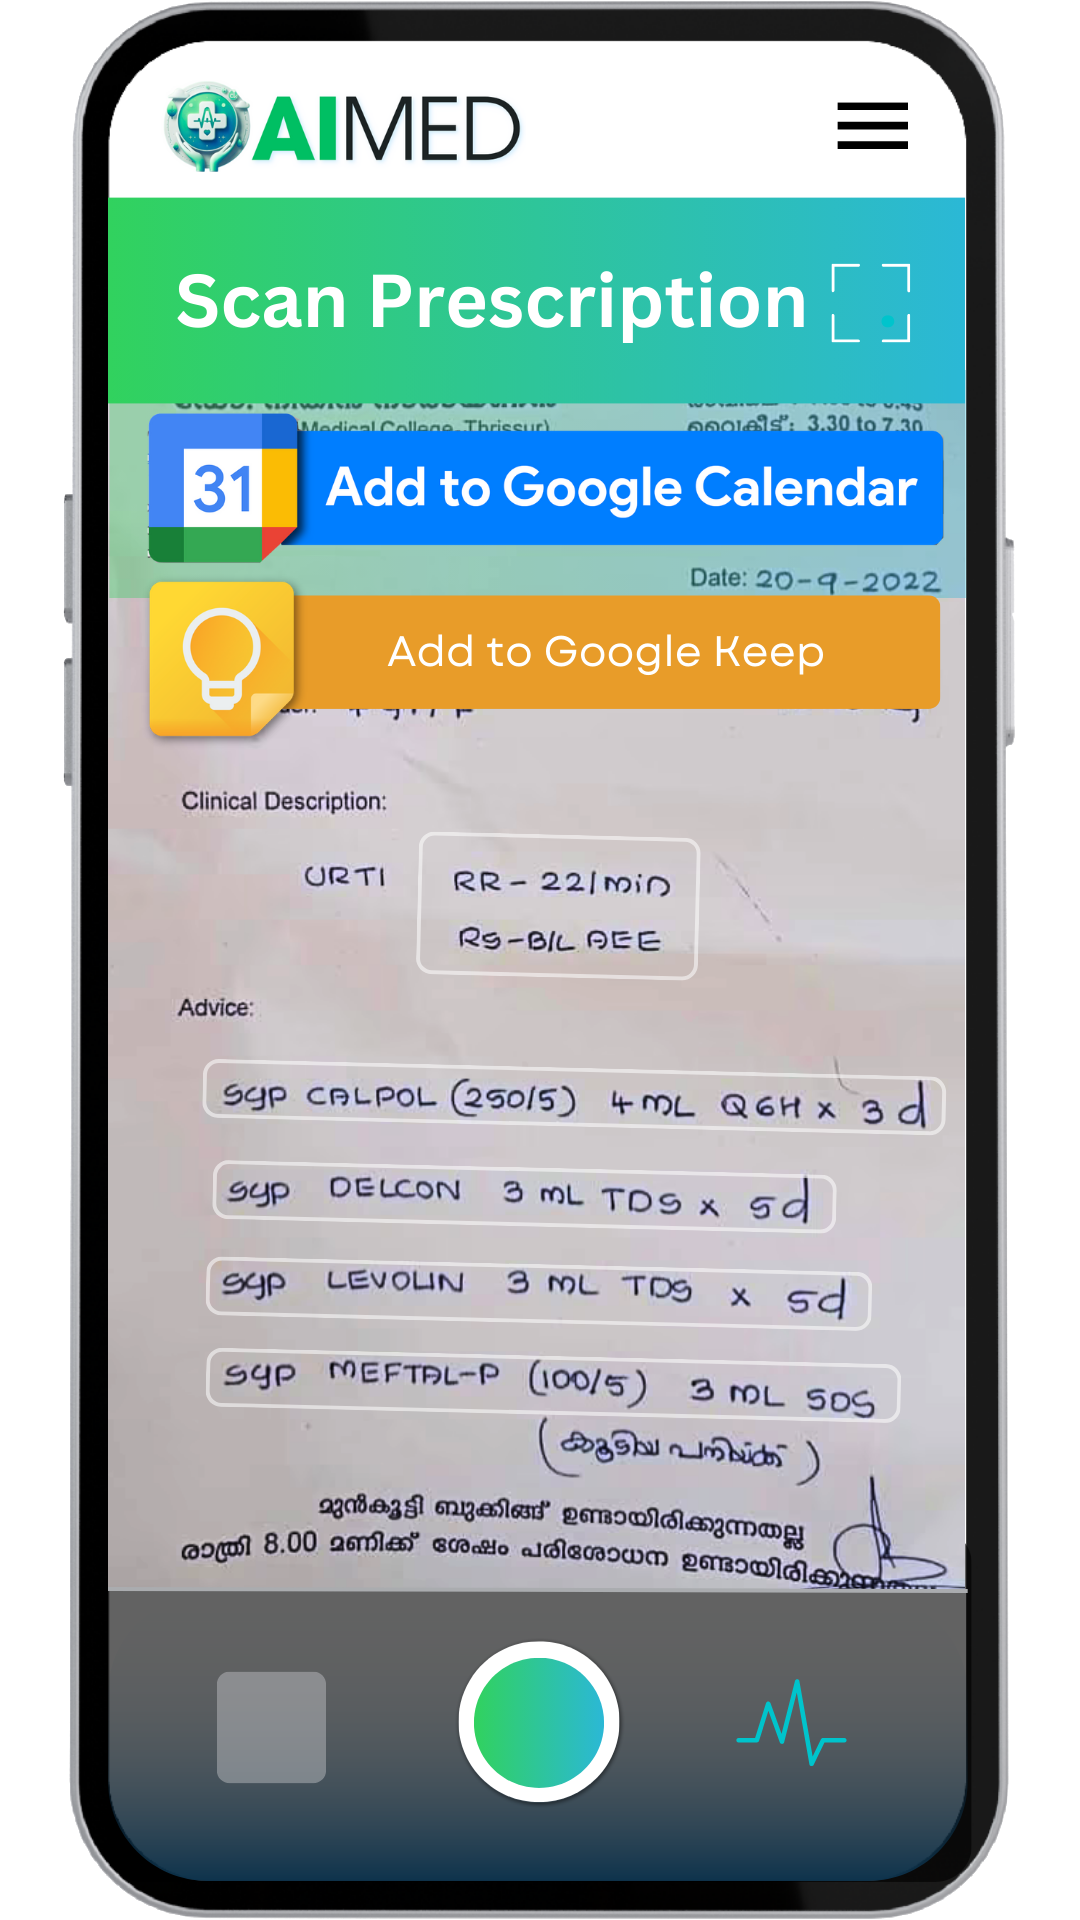 AIMED
Scan Prescription
Medical College, Thrissur)
വൈകീട്ട്: 3.30 to 7.30
31
Add to Google Calendar
Date: 20-9-2022
Add to Google Keep
Clinical Description:
URTI RR - 22/min
RS-B/L AEE
Advice:
Syp CALPOL (250/5) 4 mL Q6H x 3 d
Syp DELCON 3 mL TDS x 5d
Syp LEVOLIN 3 mL TDS x 5d
Syp MEFTAL-P (100/5) 3 mL SOS
(കൂടിയ പനിയ്ക്ക്)
മുൻകൂട്ടി ബുക്കിങ്ങ് ഉണ്ടായിരിക്കുന്നതല്ല
രാത്രി 8.00 മണിക്ക് ശേഷം പരിശോധന ഉണ്ടായിരിക്കുന്നതല്ല